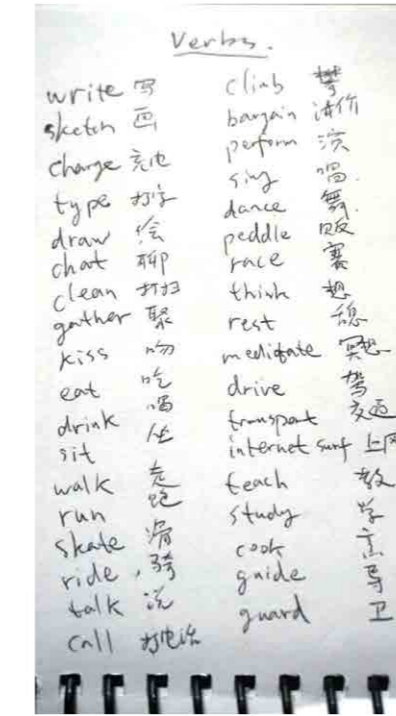 Verbs.
write 写
sketch 画
charge 充电
type 打字
draw 绘
chat 聊
clean 打扫
gather 聚
kiss 吻
eat 吃
drink 喝
sit 坐
walk 走
run 跑
skate 滑
ride 骑
talk 说
call 打电话
climb 攀
bargain 讲价
perform 演
sing 唱
dance 舞
peddle 贩
race 赛
think 想
rest 憩
meditate 冥想
drive 驾
transport 交运
internet surf 上网
teach 教
study 学
cook 烹
guide 导
guard 卫